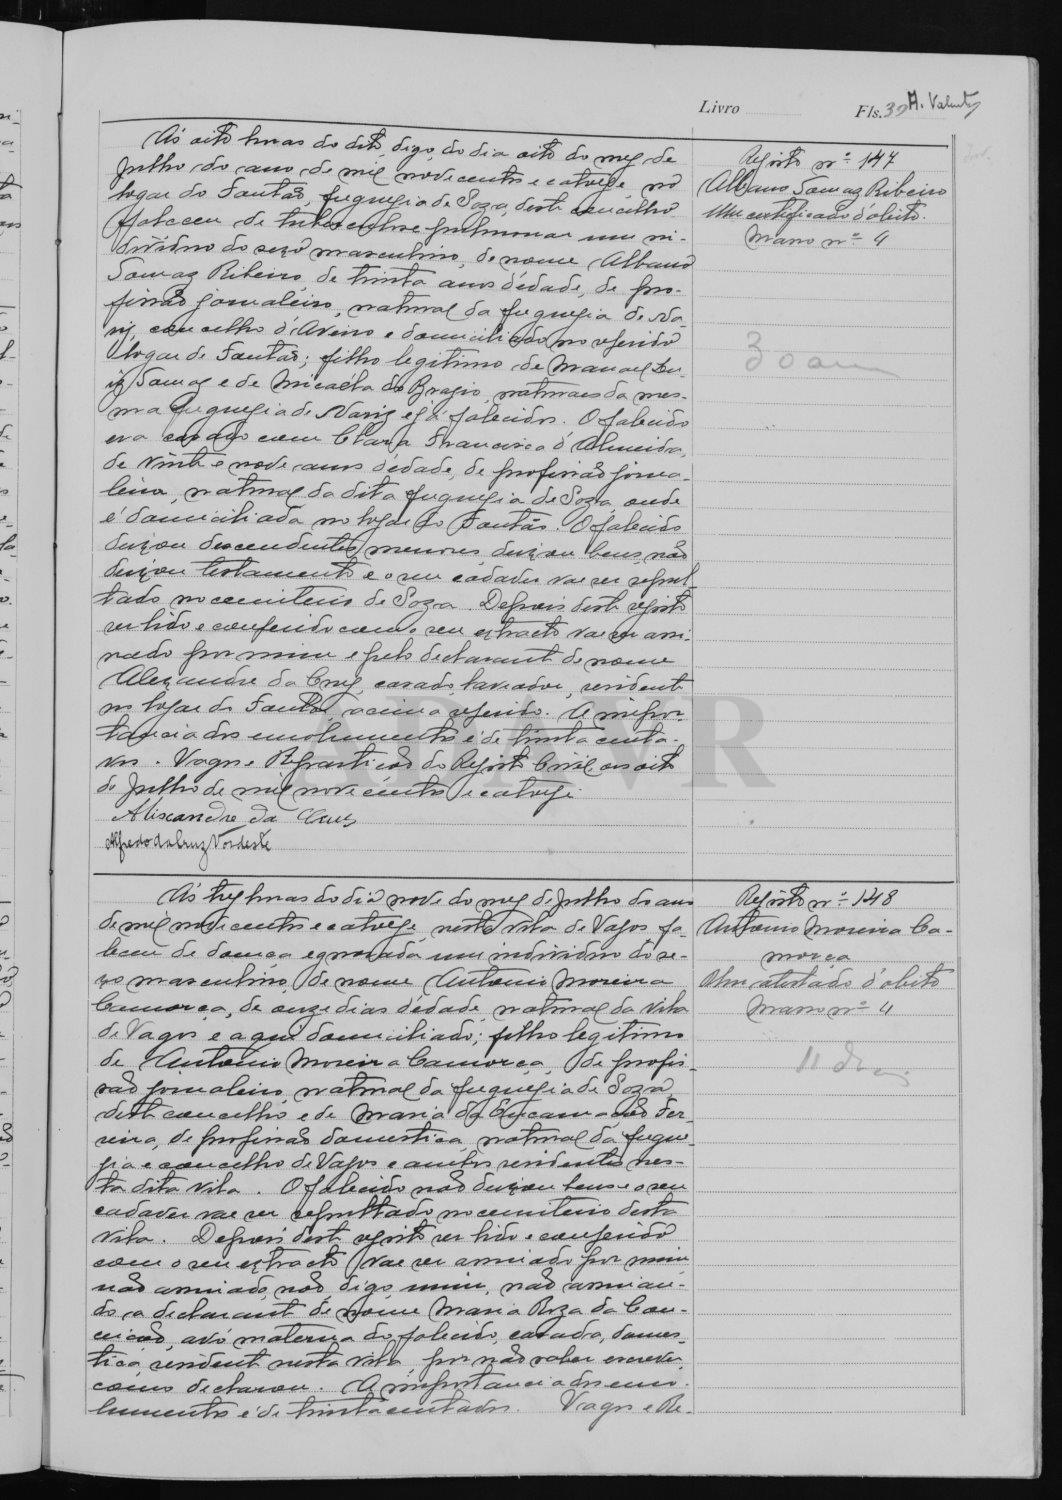 Livro Fls. 39 A. Valente
Ás oito horas do dito, digo, do dia oito do mez de
Julho do ano de mil novecentos e catorze, no
logar do Fontão, freguezia de Soza, deste concelho
faleceu de tuberculose pulmonar um in-
dividuo do sexo masculino, de nome Albano
Tomaz Ribeiro, de trinta anos d'edade, de pro-
fissão jornaleiro, natural da freguezia de Na-
riz, concelho d'Aveiro e domiciliado no referido
logar de Fontão; filho legitimo de Manoel Lu-
iz Tomaz e de Micaéla do Brazio, naturaes da mes-
ma freguezia de Nariz e já falecidos. O falecido
era casado com Clara Francisca d'Almeida,
de vinte e nove anos d'edade, de profissão jorna-
leira, natural da dita freguezia de Soza, onde
é domiciliada no logar do Fontão. O falecido
deixou descendentes menores, deixou bens, não
deixou testamento e o seu cadaver vae ser sepul-
tado no cemiterio de Soza. Depois deste registo
ser lido e conferido com o seu extracto vae ser assi-
nado por mim e pelo declarante de nome
Alexandre da Cruz, casado, lavrador, residente
no logar do Fontão, acima referido. A impor-
tancia dos emolumentos é de trinta centa-
vos. Vagos e Repartição do Registo Civil, aos oito
de Julho de mil novecentos e catorze.
Alixandre da Cruz
Alfredo da Cruz Nordeste
Registo nº 147
Albano Tomaz Ribeiro
Um certificado d'obito.
Masso nº 4
30 an
Ás trez horas do dia nove do mez de Julho do ano
de mil novecentos e catorze, nesta vila de Vagos fa-
leceu de doença ignorada um individuo do se-
xo masculino, de nome Antonio Moreira
Camorça, de onze dias d'edade, natural da vila
de Vagos e aqui domiciliado; filho legitimo
de Antonio Moreira Camorça, de profis-
são jornaleiro, natural da freguezia de Soza
deste concelho e de Maria da Encarnação Fer-
reira, de profissão domestica, natural da fregue-
zia e concelho de Vagos e ambos residentes nes-
ta dita vila. O falecido não deixou bens e o seu
cadaver vae ser sepultado no cemiterio desta
vila. Depois deste registo ser lido e conferido
com o seu extracto vae ser assinado por mim
não assinado, não, digo, mim, não assinan-
do a declarante de nome Maria Roza da Con-
ceição, avó materna do falecido, casada, domes-
tica, residente nesta vila, por não saber escrever,
como declarou. A importancia dos emo-
lumentos é de trinta centavos. Vagos e Re-
Registo nº 148
Antonio Moreira Ca-
morça
Um atestado d'obito
Masso nº 4
11 di